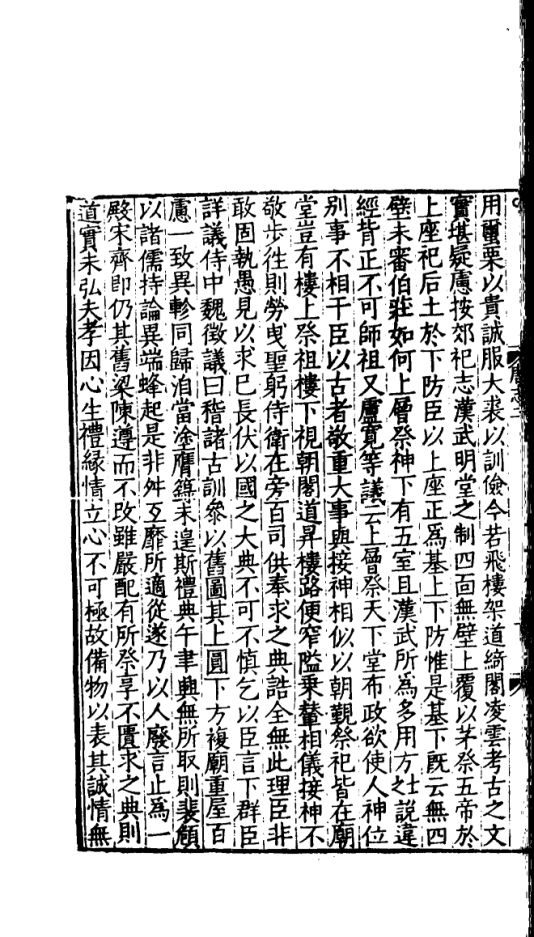 用蠒栗以貴誠服大裘以訓儉今若飛樓架道綺閣凌雲考古之文
實堪疑慮按郊祀志漢武明堂之制四面無壁上覆以茅祭五帝於
上座祀后土於下防臣以上座正爲基上下防惟是基下旣云無四
壁未審伯莊如何上層祭神下有五室且漢武所爲多用方士說違
經背正不可師祖又盧寬等議云上層祭天下堂布政欲使人神位
別事不相干臣以古者敬重大事與接神相似以朝覲祭祀皆在廟
堂豈有樓上祭祖樓下視朝閣道昇樓路便窄隘乗輦相儀接神不
敬步徃則勞曳聖躬侍衛在旁百司供奉求之典誥全無此理臣非
敢固執愚見以求已長伏以國之大典不可不慎乞以臣言下群臣
詳議侍中魏徵議曰稽諸古訓參以舊圖其上圓下方複廟重屋百
慮一致異軫同歸洎當塗膺籙未遑斯禮典午聿興無所取則裴頠
以諸儒持論異端蜂起是非舛互靡所適從遂乃以人廢言止爲一
殿宋齊卽仍其舊梁陳遵而不改雖嚴配有所祭享不匱求之典則
道實未弘夫孝因心生禮緣情立心不可極故備物以表其誠情無